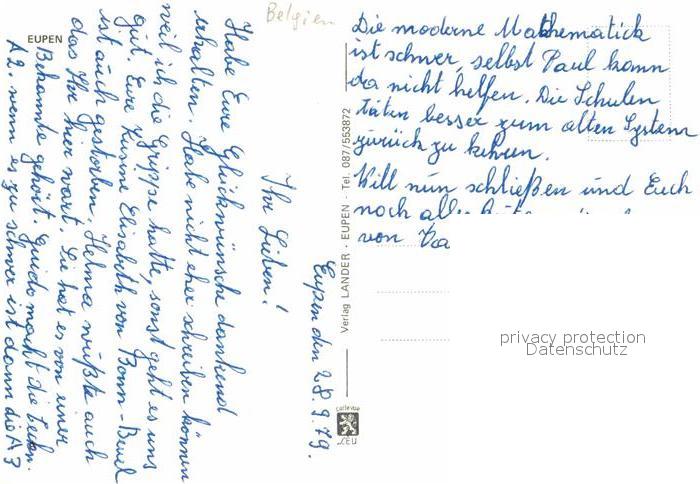 Belgien
EUPEN
Eupen den 28.9.79.
Ihr Lieben!
Habe Eure Glückwünsche dankend
erhalten. Habe nicht eher schreiben können
weil ich die Grippe hatte, sonst geht es uns
gut. Eure Kusine Elisabeth von Bonn-Beuel
ist auch gestorben. Helma wußte auch
das Ihr hier wart. Sie hat es von einer
Bekannte gehört. Guido macht die
A2. wenn es zu schwer ist dann die A3
Die moderne Mathematick
ist schwer, selbst Paul kann
da nicht helfen. Die Schulen
täten besser zum alten System
zurück zu kehren.
Will nun schließen und Euch
noch alles
von
Verlag LANDER · EUPEN - Tel. 087/553872
privacy protection
Datenschutz